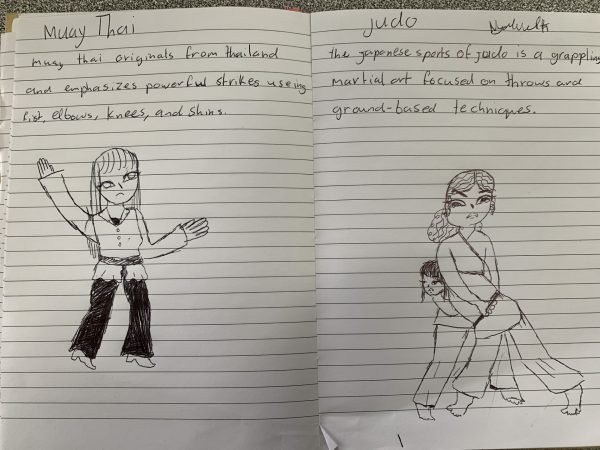 Muay Thai
muay thai originals from thailand
and emphasizes powerful strikes useing
fist, elbows, knees, and shins.
judo
the japenese sports of judo is a grappling
martial art focused on throws and
ground-based techniques.